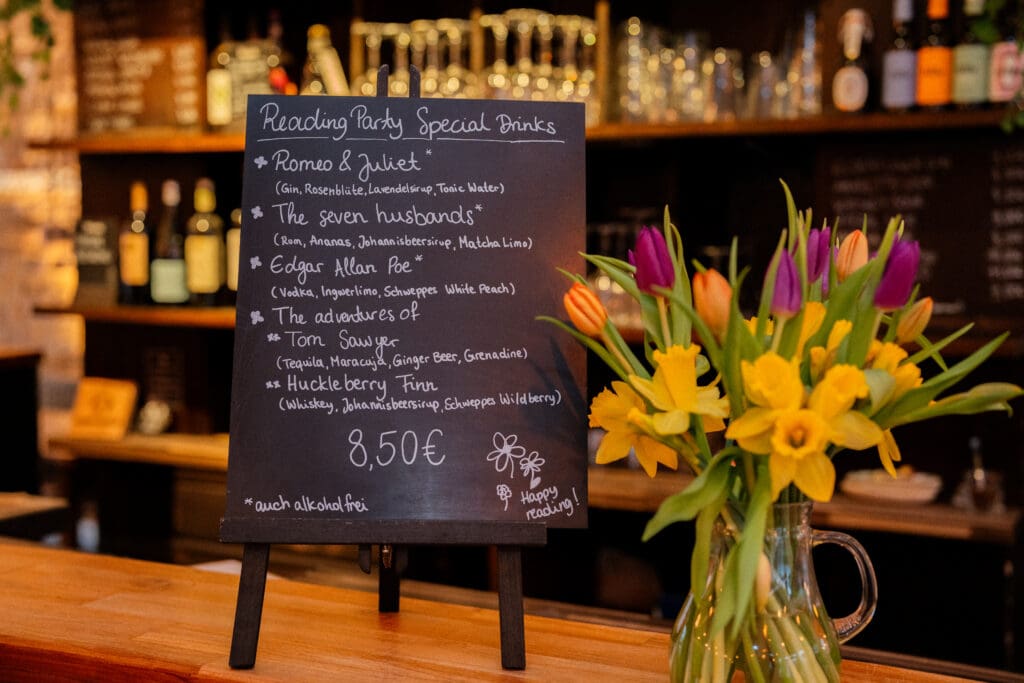 Reading Party Special Drinks
Romeo & Juliet*
(Gin, Rosenblüte, Lavendelsirup, Tonic Water)
The seven husbands*
(Rom, Ananas, Johannisbeersirup, Matcha Limo)
Edgar Allan Poe*
(Vodka, Ingwerlimo, Schweppes White Peach)
The adventures of
** Tom Sawyer
(Tequila, Maracuja, Ginger Beer, Grenadine)
** Huckleberry Finn
(Whiskey, Johannisbeersirup, Schweppes Wildberry)
8,50€
*auch alkoholfrei
Happy
reading!